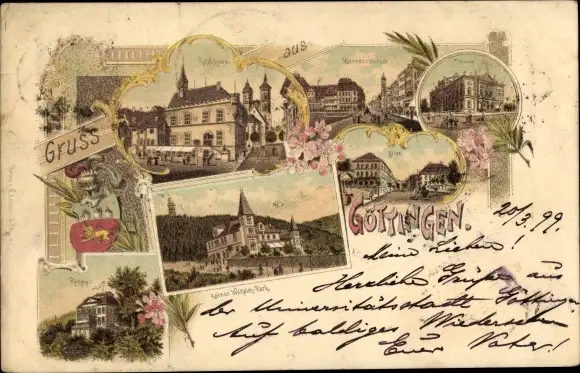 Gruss
aus
Rathhaus
Weenderstrasse
Theater
Allee
GÖTTINGEN.
Kaiser Wilhelm-Park
Rohns
20/3. 99.
Meine Lieben!
Herzliche Grüße aus
der Universitätsstadt Götting
Auf baldiges Wiedersehen
Euer Vater!